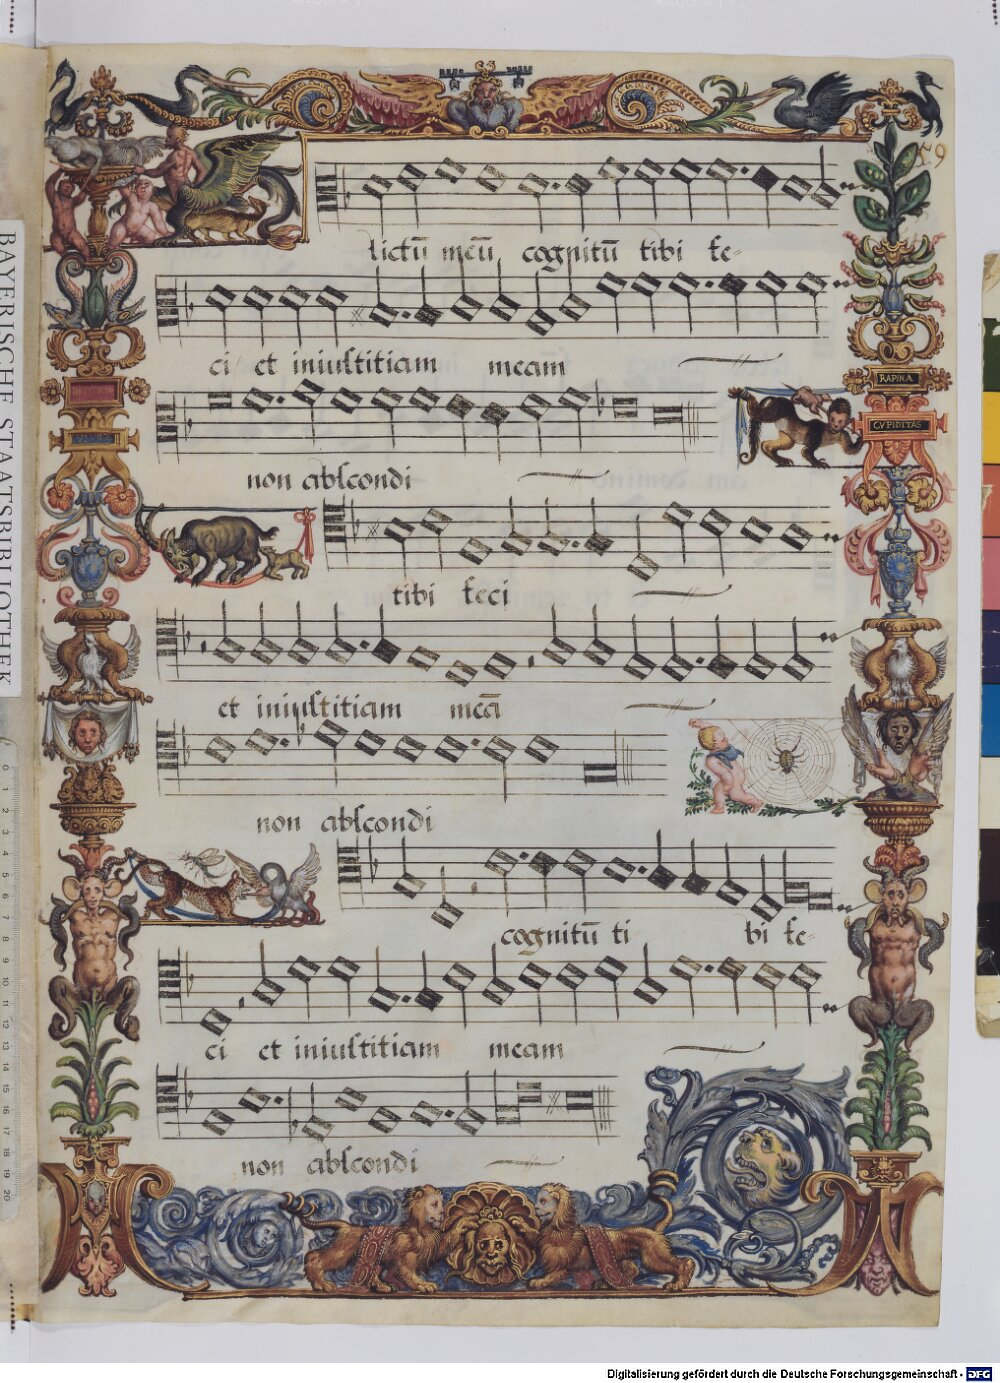 59
lictū meū cognitū tibi fe-
ci et iniustitiam meam
RAPINA
CVPIDITAS
non abscondi
tibi feci
et iniustitiam meā
non abscondi
cognitū ti bi fe-
ci et iniustitiam meam
non abscondi
BAYERISCHE STAATSBIBLIOTHEK
0 1 2 3 4 5 6 7 8 9 10 11 12 13 14 15 16 17 18 19 20
Digitalisierung gefördert durch die Deutsche Forschungsgemeinschaft - DFG